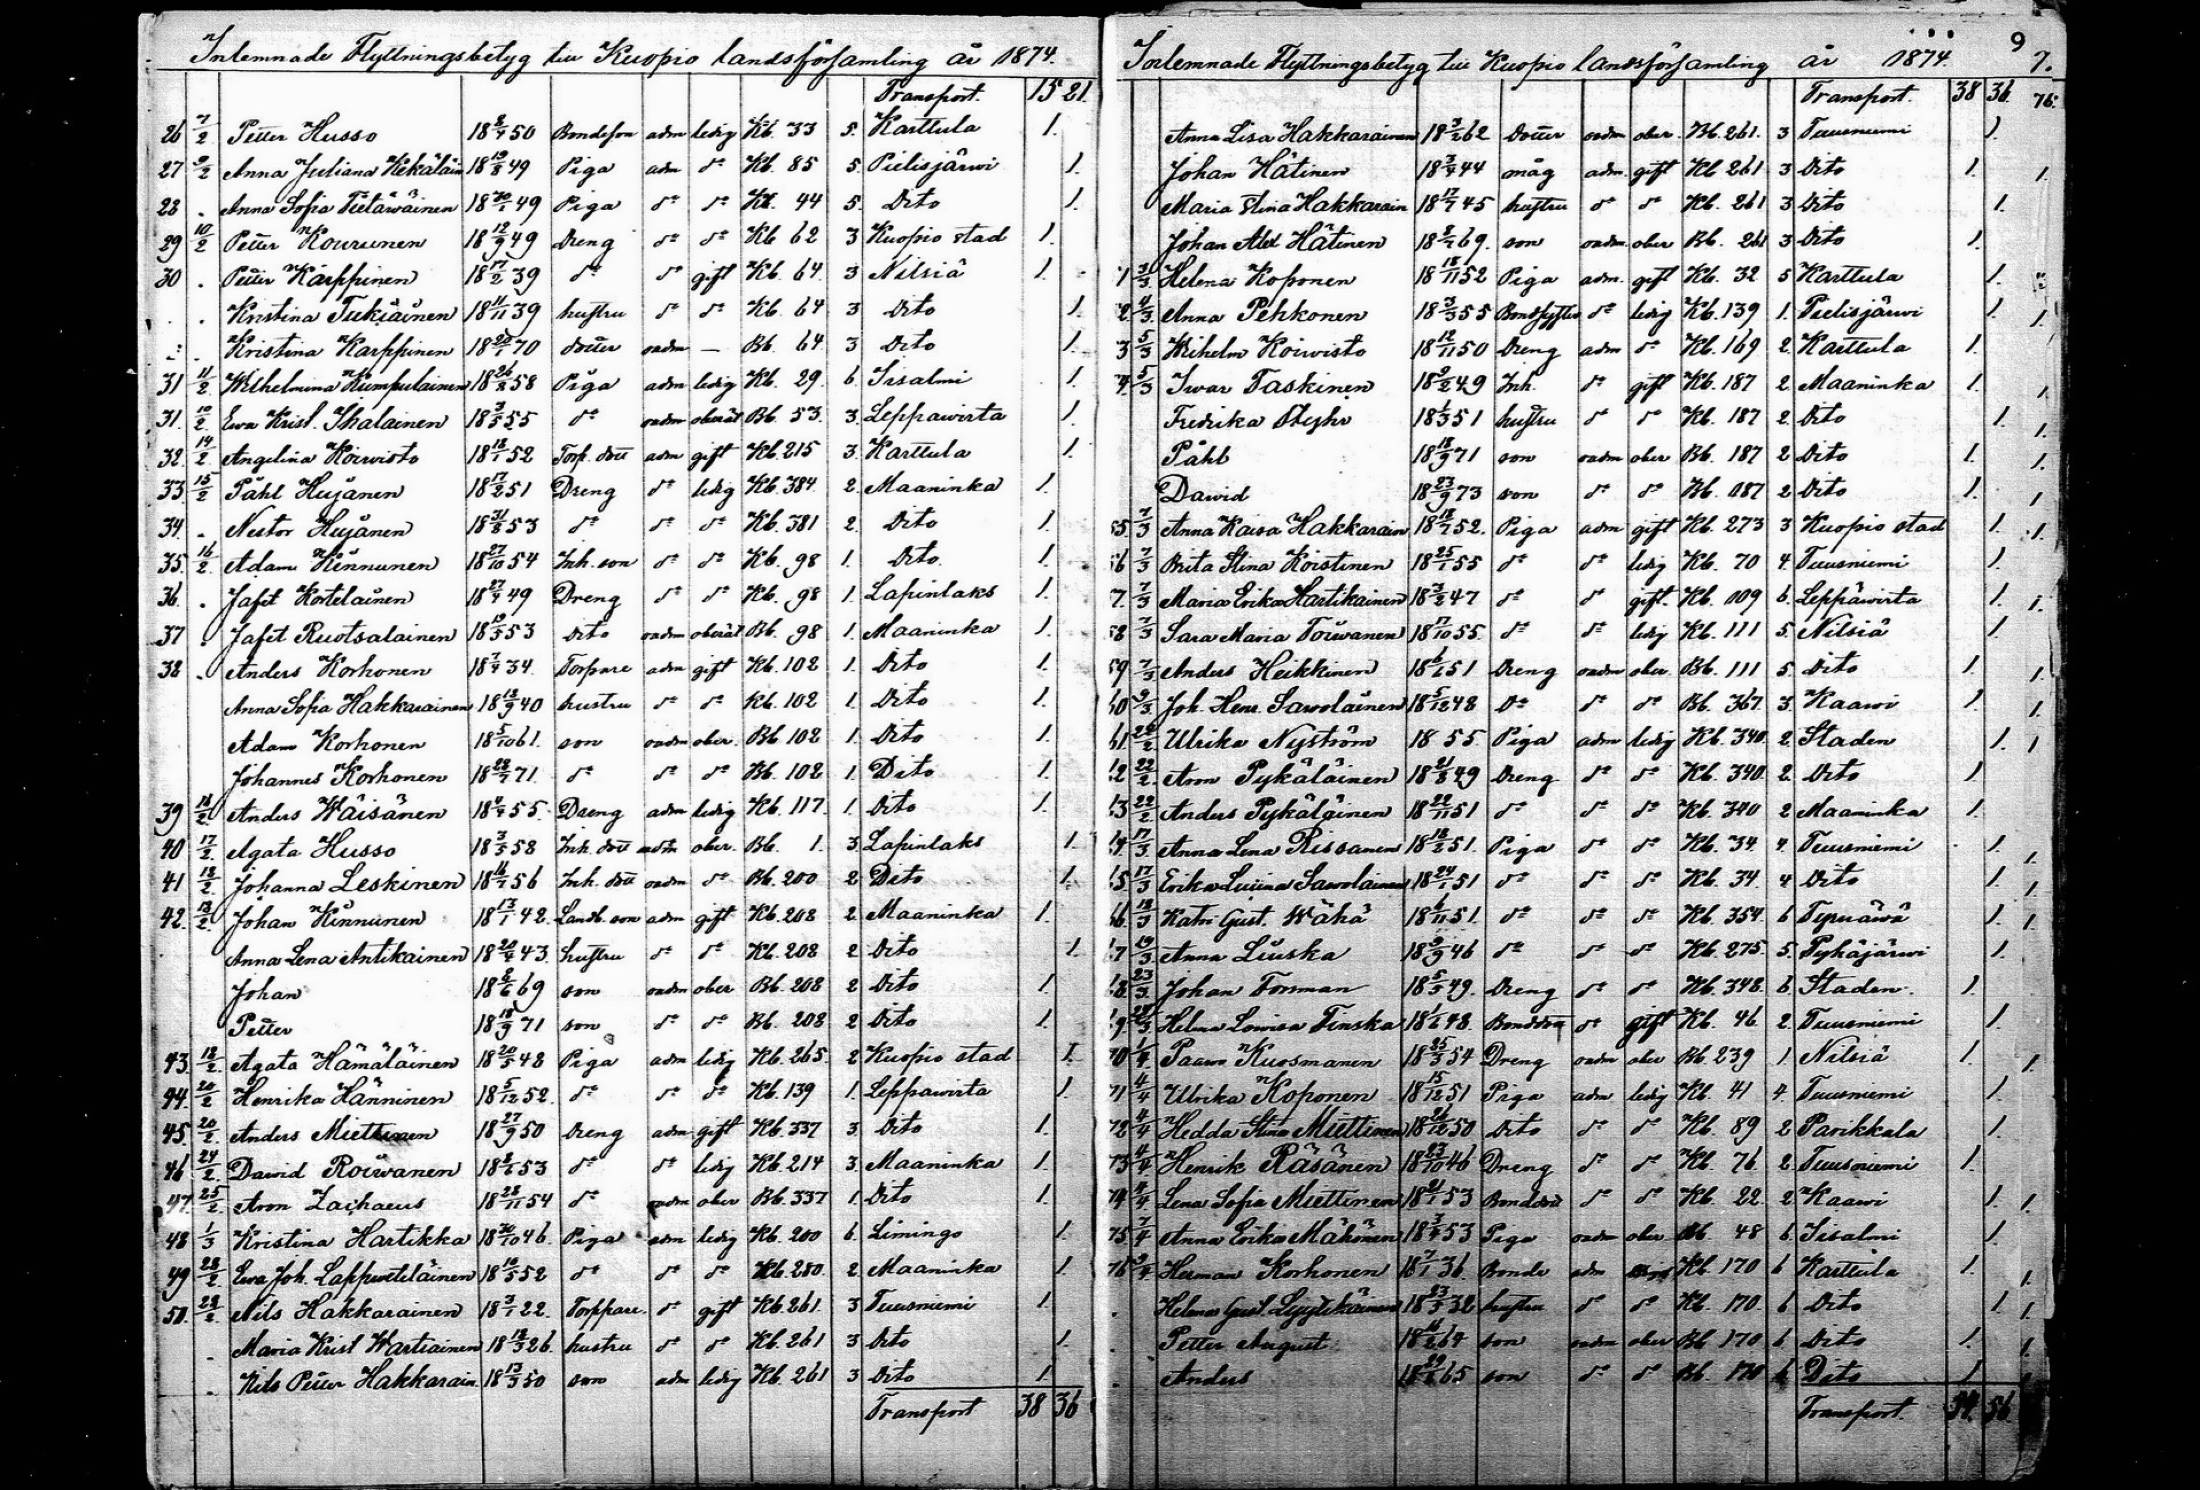 Inlemnade Flyttningsbetyg till Kuopio landsförsamling år 1874.
Transport. 15 21.
26 7/2 Petter Husso 18 50 Bondeson adm ledig Kb. 33 5. Karttula 1.
27 9/2 Anna Juliana Kekäläin 18 49 Piga adm do Kb. 85 5. Pielisjärwi 1.
28 . Anna Sofia Tietäwäinen 18 49 Piga do do Kb. 44 5. Dito 1.
29 10/2 Petter Kourunen 18 12/9 49 Dreng do do Kb 62 3 Kuopio stad 1.
30 . Petter Karppinen 18 17/2 39 do do gift Kb. 64. 3 Nilsiä 1.
. . Kristina Tukiäinen 18 11/11 39 hustru do do Kb. 64 3 Dito 1.
. . Kristina Karppinen 18 70 dotter oadm — Bb. 64 3 Dito 1.
31 11/2 Wilhelmina Rumpulainen 18 26/8 58 Piga adm ledig Kb. 29. 6. Iisalmi 1.
31. 10/2 Ewa Krist. Ihalainen 18 55 do oadm oberät Bb. 53. 3. Leppäwirta 1.
32. 14/2 Angelina Koiwisto 18 18/1 52 Torp. dott adm gift Kb. 215 3. Karttula 1.
33 15/2 Påhl Hujanen 18 17/2 51 Dreng do ledig Kb. 384. 2. Maaninka 1.
34. . Nestor Hujanen 18 31/8 53 do do do Kb. 381 2. Dito 1.
35. 16/2 Adam Kinnunen 18 27/10 54 Inh. son do do Kb. 98 1. Dito. 1.
36. . Jafet Kortelainen 18 49 Dreng do do Kb. 98 1. Lapinlaks 1.
37 . Jafet Ruotsalainen 18 53 Dito oadm oberät Bb. 98 1. Maaninka 1.
38 . Anders Korhonen 18 34. Torpare adm gift Kb. 102 1. Dito 1.
Anna Sofia Hakkarainen 18 18/9 40 hustru do do Kb. 102 1. Dito 1.
Adam Korhonen 18 5/10 61. son oadm ober. Bb. 102 1. Dito 1.
Johannes Korhonen 18 71. do do do Bb. 102 1. Dito 1.
39 18/2 Anders Wäisänen 18 55. Dreng adm ledig Kb. 117. 1. Dito 1.
40 17/2 Agata Husso 18 58 Inh. dott oadm ober. Bb. 1. 3. Lapinlaks 1.
41 18/2 Johanna Leskinen 18 56 Inh. dott oadm do Bb. 200 2 Dito 1.
42. 18/2 Johan Kinnunen 18 13/1 42. Landb. son adm gift Kb. 208 2. Maaninka 1.
Anna Lena Antikainen 18 43. hustru do do Kb. 208 2 Dito 1.
Johan 18 69 son oadm ober Bb. 208 2 Dito 1.
Petter 18 18/9 71 son do do Bb. 208 2 Dito 1.
43. 18/2 Agata Hämäläinen 18 20/5 48 Piga adm ledig Kb. 265. 2 Kuopio stad 1.
44. 20/2 Henrika Hänninen 18 5/12 52. do do do Kb. 139 1. Leppäwirta 1.
45. 20/2 Anders Miettinen 18 27/9 50 Dreng adm gift Kb. 337 3. Dito 1.
46 24/2 Dawid Roiwanen 18 53 do do ledig Kb. 214 3. Maaninka 1.
47. 25/2 Aron Zachaeus 18 28/11 54 do oadm ober Bb. 337 1. Dito 1.
48 1/3 Kristina Hartikka 18 30/10 46. Piga adm ledig Kb. 200 6. Limingo 1.
49 28/2 Ewa Joh. Lappweteläinen 18 16/5 52 do do do Kb. 280. 2. Maaninka 1.
50. 28/2 Nils Hakkarainen 18 3/1 22. Torppare. do gift Kb. 261. 3 Tuusniemi 1.
. Maria Krist Wartiainen 18 18/3 26. hustru do do Kb. 261 3 Dito 1.
. Nils Petter Hakkarain. 18 13/3 50 son adm ledig Kb. 261 3 Dito 1
Transport 38 36
9
Inlemnade Flyttningsbetyg till Kuopio landsförsamling år 1874. 7.
Transport. 38 36. 76.
Anna Lisa Hakkarainen 18 3/2 62 Dotter oadm ober. Bb. 261. 3 Tuusniemi 1.
Johan Hätinen 18 44 måg adm. gift Kb 261 3 Dito 1.
Maria Stina Hakkarain 18 45 hustru do do Kb. 261 3 Dito 1.
Johan Alex Hätinen 18 69. son oadm. ober Bb. 261 3 Dito 1.
1 Helena Koponen 18 18/11 52 Piga adm. gift Kb. 32 5 Karttula 1.
2. Anna Pehkonen 18 3/3 55 do ledig Kb. 139 1. Pielisjärwi 1.
3 5/3 Wilhelm Koiwisto 18 12/11 50 Dreng adm do Kb. 169 2. Karttula 1.
4. 5/3 Iwar Taskinen 18 9/2 49 Inh. do gift Kb. 187 2. Maaninka 1.
Fredrika 18 1/3 51 hustru do do Kb. 187 2. Dito 1.
Påhl 18 18/9 71 son oadm ober Bb. 187 2. Dito 1.
Dawid 18 23/9 73 son do do Bb. 187 2 Dito 1.
55. 7/3 Anna Kaisa Hakkarain 18 52. Piga adm gift Kb. 273 3 Kuopio stad 1.
56 7/3 Brita Stina Koistinen 18 25/1 55 do do ledig Kb. 70 4. Tuusniemi 1.
57. 7/3 Maria Erika Hartikainen 18 3/2 47 do do gift. Kb. 109 6. Leppäwirta 1.
58 7/3 Sara Maria Toiwanen 18 17/10 55. do do ledig Kb. 111 5. Nilsiä 1.
59 7/3 Anders Heikkinen 18 51 Dreng oadm ober. Bb. 111 5. Dito 1.
60 9/3 Joh. Henr. Sawolainen 18 5/12 48 Do do do Bb. 367. 3. Kaawi 1.
61 22/2 Ulrika Nyström 18 55. Piga adm ledig Kb. 340. 2. Staden 1.
2 22/2 Aron Pykäläinen 18 21/8 49 Dreng do do Kb. 340. 2. Dito 1
3 22/2 Anders Pykäläinen 18 22/11 51 do do do Kb. 340 2 Maaninka 1.
4 17/3 Anna Lena Rissanen 18 18/2 51. Piga do do Kb. 34. 4. Tuusniemi 1.
5 17/3 Erika Lusina Sawolainen 18 24/1 51 do do do Kb. 34. 4 Dito 1.
6 18/3 Katri Gust. Wähä 18 6/11 51. do do do Kb. 354. 6 Tyrnäwä 1.
7 19/3 Anna Liuska 18 9/9 46 do do do Kb. 275. 5. Pyhäjärwi 1.
8 23/3 Johan Forsman 18 5/5 49. Dreng do do Kb. 348. 6. Staden. 1.
9 Helena Lowisa Tinska 18 48. Bonddott do gift Kb. 46 2. Tuusniemi 1.
70 1/4 Paawo Kuosmanen 18 25/3 54 Dreng oadm ober Bb. 239 1 Nilsiä 1.
71 4/4 Ulrika Koponen 18 15/12 51 Piga adm ledig Kb. 41 4. Tuusniemi 1.
72 4/4 Hedda Stina Miettinen 18 50 Dito do do Kb. 89 2 Parikkala 1.
73 4/4 Henrik Räsänen 18 23/10 46 Dreng do do Kb. 76. 2. Tuusniemi 1.
74 4/4 Lena Sofia Miettinen 18 21/1 53 Bonddott do do Kb. 22. 2 Kaawi 1.
75 7/4 Anna Erika Mähönen 18 53 Piga oadm ober Bb. 48 6. Iisalmi 1.
76 9/4 Herman Korhonen 18 7/1 36. Bonde adm Kb. 170 6 Karttula 1.
Helena Gust. Lyytikäinen 18 23/3 32 hustru do do Kb. 170 6 Dito 1.
Petter August 18 64 son oadm ober Bb. 170 6. Dito 1.
Anders 18 65 son do do Bb. 170 6 Dito 1
Transport. 54. 56.